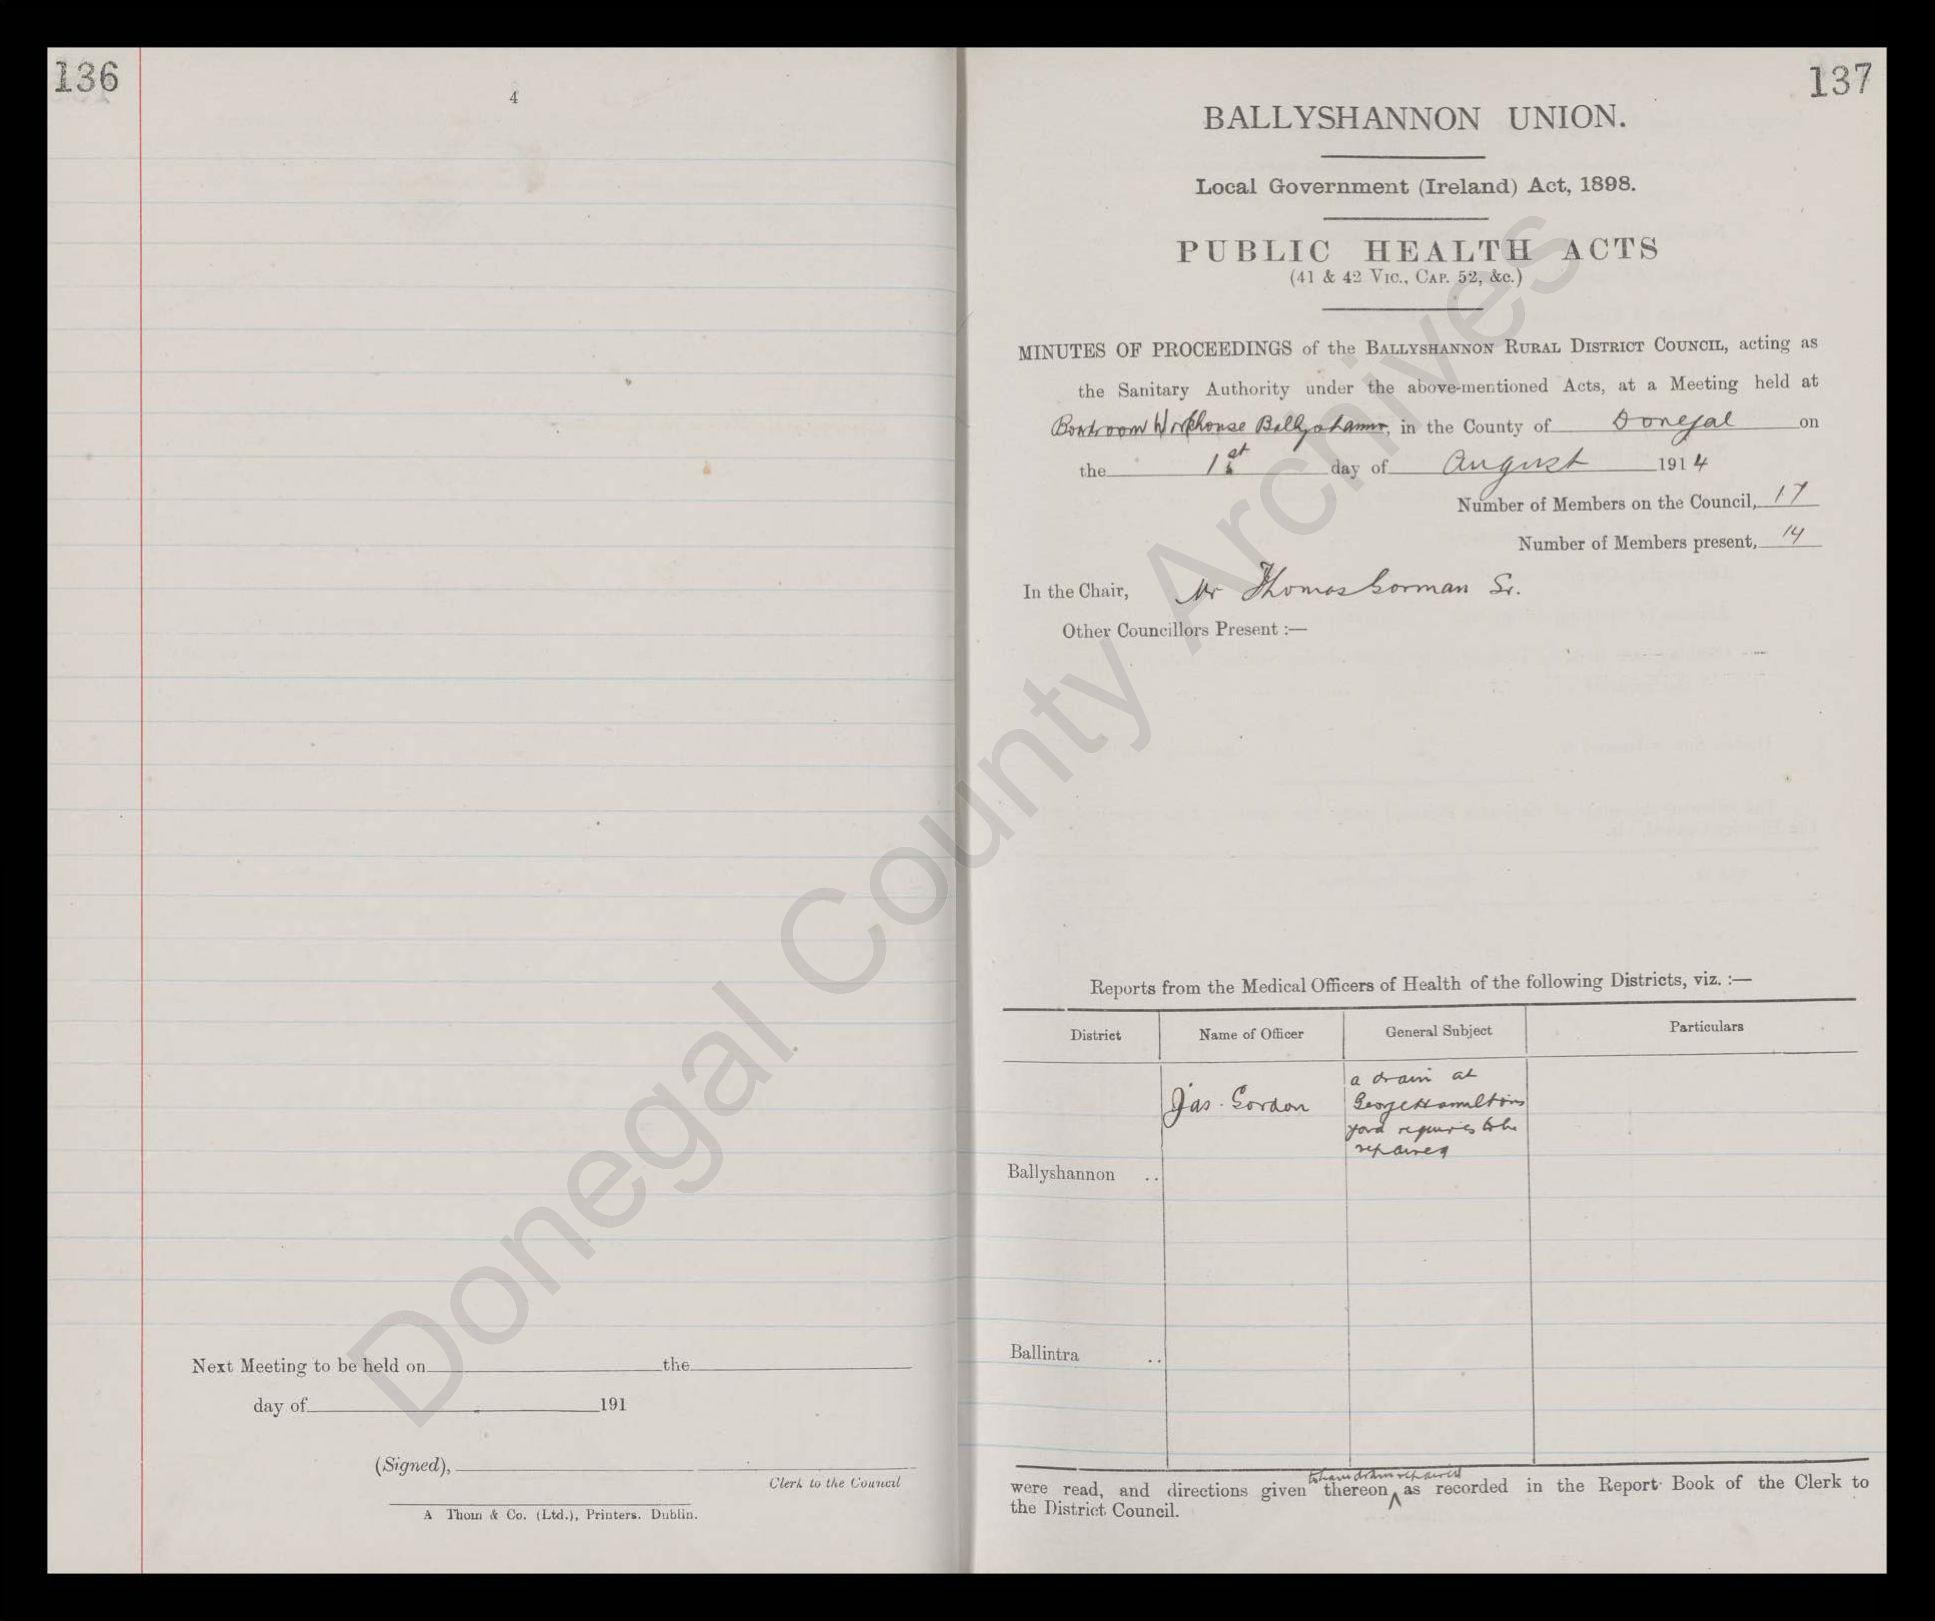 136
4
Next Meeting to be held on the
day of 191
(Signed),
Clerk to the Council
A Thom & Co. (Ltd.), Printers. Dublin.
137
BALLYSHANNON UNION.
Local Government (Ireland) Act, 1898.
PUBLIC HEALTH ACTS
(41 & 42 Vic., Cap. 52, &c.)
MINUTES OF PROCEEDINGS of the Ballyshannon Rural District Council, acting as
the Sanitary Authority under the above-mentioned Acts, at a Meeting held at
Boardroom Workhouse Ballyshannon, in the County of Donegal on
the 1st day of August 1914
Number of Members on the Council, 17
Number of Members present, 14
In the Chair, Mr Thomas Gorman Sr.
Other Councillors Present :—
Reports from the Medical Officers of Health of the following Districts, viz. :—
District Name of Officer General Subject Particulars
Jas. Gordon
a drain at
George Hamiltons
yard requires to be
repaired
Ballyshannon ..
Ballintra ..
to have drain repaired
were read, and directions given thereon, as recorded in the Report Book of the Clerk to
the District Council.
Donegal County Archives